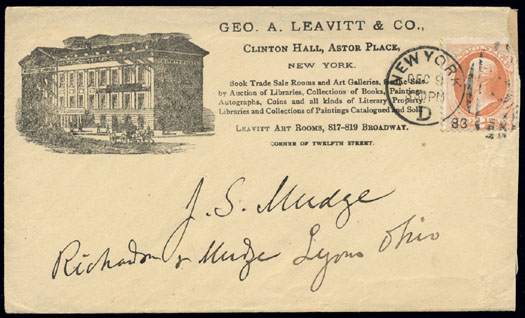 GEO. A. LEAVITT & CO.,
CLINTON HALL, ASTOR PLACE,
NEW YORK.
Book Trade Sale Rooms and Art Galleries, for the Sale
by Auction of Libraries, Collections of Books, Paintings,
Autographs, Coins and all kinds of Literary Property.
Libraries and Collections of Paintings Catalogued and Sold.
LEAVITT ART ROOMS, 817-819 BROADWAY.
CORNER OF TWELFTH STREET.
NEW YORK
DEC 9
PM
D
83
J. S. Mudge
Richardson & Mudge Lyons Ohio